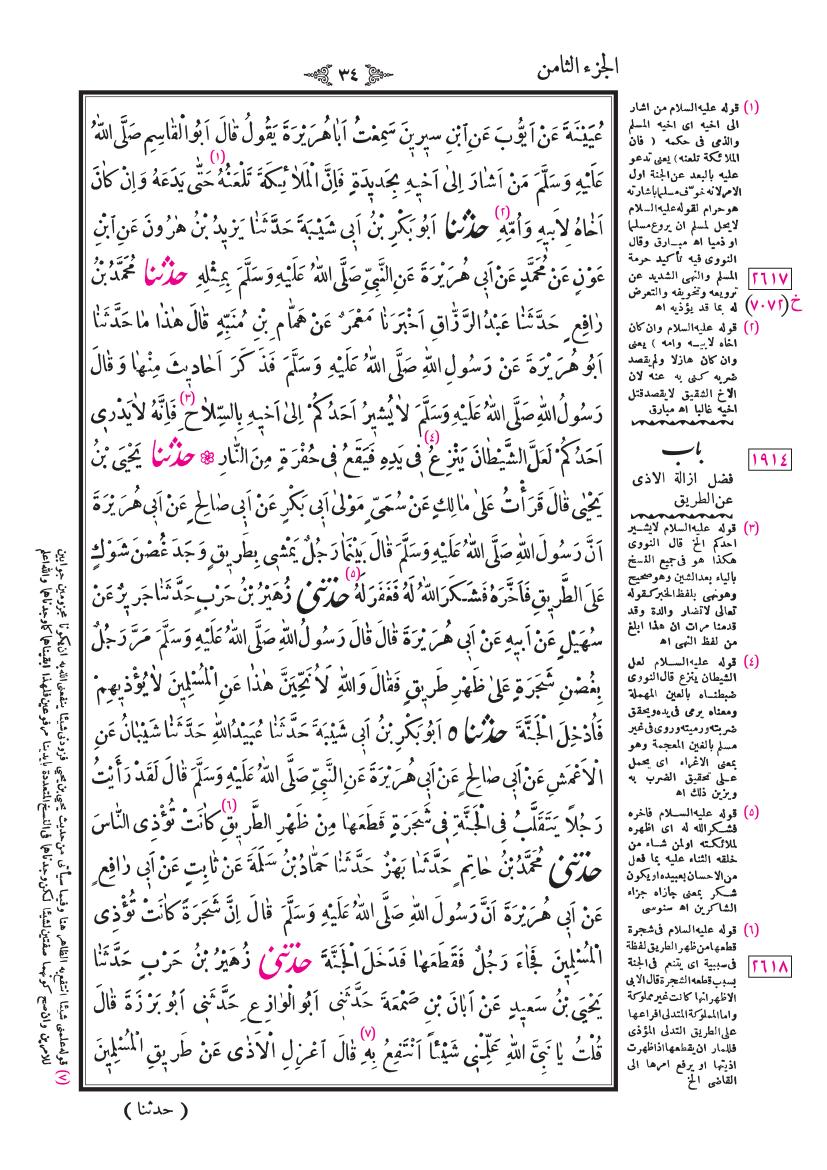 الجزء الثامن
٣٤
عُيَيْنَةَ عَنْ اَيُّوبَ عَنِ ابْنِ سِيرِينَ سَمِعْتُ اَبَا هُرَيْرَةَ يَقُولُ قَالَ اَبُو الْقَاسِمِ صَلَّى اللهُ
عَلَيْهِ وَسَلَّمَ مَنْ اَشَارَ اِلىٰ اَخِيهِ بِحَدِيدَةٍ فَاِنَّ الْمَلاٰئِكَةَ تَلْعَنُهُ (١) حَتّٰى يَدَعَهُ وَاِنْ كَانَ
اَخَاهُ لِاَبِيهِ وَاُمِّهِ (٢) حَدَّثَنَا اَبُو بَكْرِ بْنُ اَبِي شَيْبَةَ حَدَّثَنَا يَزِيدُ بْنُ هٰرُونَ عَنِ ابْنِ
عَوْنٍ عَنْ مُحَمَّدٍ عَنْ اَبِي هُرَيْرَةَ عَنِ النَّبِيِّ صَلَّى اللهُ عَلَيْهِ وَسَلَّمَ بِمِثْلِهِ حَدَّثَنَا مُحَمَّدُ بْنُ
رٰافِعٍ حَدَّثَنَا عَبْدُ الرَّزَّاقِ اَخْبَرَنَا مَعْمَرٌ عَنْ هَمَّامِ بْنِ مُنَبِّهٍ قَالَ هٰذَا مَا حَدَّثَنَا
اَبُو هُرَيْرَةَ عَنْ رَسُولِ اللهِ صَلَّى اللهُ عَلَيْهِ وَسَلَّمَ فَذَكَرَ اَحَادِيثَ مِنْهَا وَقَالَ
رَسُولُ اللهِ صَلَّى اللهُ عَلَيْهِ وَسَلَّمَ لاٰ يُشِيرُ اَحَدُكُمْ اِلىٰ اَخِيهِ بِالسِّلاٰحِ (٣) فَاِنَّهُ لاٰ يَدْرِي
اَحَدُكُمْ لَعَلَّ الشَّيْطَانَ يَنْزِعُ (٤) فِي يَدِهِ فَيَقَعُ فِي حُفْرَةٍ مِنَ النَّارِ ۞ حَدَّثَنَا يَحْيَى بْنُ
يَحْيٰى قَالَ قَرَأْتُ عَلىٰ مَالِكٍ عَنْ سُمَيٍّ مَوْلىٰ اَبِي بَكْرٍ عَنْ اَبِي صَالِحٍ عَنْ اَبِي هُرَيْرَةَ
اَنَّ رَسُولَ اللهِ صَلَّى اللهُ عَلَيْهِ وَسَلَّمَ قَالَ بَيْنَمَا رَجُلٌ يَمْشِي بِطَرِيقٍ وَجَدَ غُصْنَ شَوْكٍ
عَلَى الطَّرِيقِ فَاَخَّرَهُ فَشَكَرَ اللهُ لَهُ فَغَفَرَ لَهُ (٥) حَدَّثَنِي زُهَيْرُ بْنُ حَرْبٍ حَدَّثَنَا جَرِيرٌ عَنْ
سُهَيْلٍ عَنْ اَبِيهِ عَنْ اَبِي هُرَيْرَةَ قَالَ قَالَ رَسُولُ اللهِ صَلَّى اللهُ عَلَيْهِ وَسَلَّمَ مَرَّ رَجُلٌ
بِغُصْنِ شَجَرَةٍ عَلىٰ ظَهْرِ طَرِيقٍ فَقَالَ وَاللهِ لَاُنَحِّيَنَّ هٰذَا عَنِ الْمُسْلِمِينَ لاٰ يُؤْذِيهِمْ
فَاُدْخِلَ الْجَنَّةَ حَدَّثَنَا ٥ اَبُو بَكْرِ بْنُ اَبِي شَيْبَةَ حَدَّثَنَا عُبَيْدُ اللهِ حَدَّثَنَا شَيْبَانُ عَنِ
الْاَعْمَشِ عَنْ اَبِي صَالِحٍ عَنْ اَبِي هُرَيْرَةَ عَنِ النَّبِيِّ صَلَّى اللهُ عَلَيْهِ وَسَلَّمَ قَالَ لَقَدْ رَأَيْتُ
رَجُلاً يَتَقَلَّبُ فِي الْجَنَّةِ فِي شَجَرَةٍ قَطَعَهَا مِنْ ظَهْرِ الطَّرِيقِ (٦) كَانَتْ تُؤْذِي النَّاسَ
حَدَّثَنِي مُحَمَّدُ بْنُ حَاتِمٍ حَدَّثَنَا بَهْزٌ حَدَّثَنَا حَمَّادُ بْنُ سَلَمَةَ عَنْ ثَابِتٍ عَنْ اَبِي رٰافِعٍ
عَنْ اَبِي هُرَيْرَةَ اَنَّ رَسُولَ اللهِ صَلَّى اللهُ عَلَيْهِ وَسَلَّمَ قَالَ اِنَّ شَجَرَةً كَانَتْ تُؤْذِي
الْمُسْلِمِينَ فَجَاءَ رَجُلٌ فَقَطَعَهَا فَدَخَلَ الْجَنَّةَ حَدَّثَنِي زُهَيْرُ بْنُ حَرْبٍ حَدَّثَنَا
يَحْيَى بْنُ سَعِيدٍ عَنْ اَبَانَ بْنِ صَمْعَةَ حَدَّثَنِي اَبُو الْوٰازِعِ حَدَّثَنِي اَبُو بَرْزَةَ قَالَ
قُلْتُ يَا نَبِيَّ اللهِ عَلِّمْنِي شَيْئاً اَنْتَفِعُ بِهِ (٧) قَالَ اَعْزِلِ الْاَذٰى عَنْ طَرِيقِ الْمُسْلِمِينَ
( حدثنا )
(١) قوله عليه السلام من اشار
الى اخيه اى اخيه المسلم
والذمى فى حكمه ( فان
الملائكة تلعنه ) يعنى تدعو
عليه بالبعد عن الجنة اول
الامر لانه خوف مسلما باشارته
هو حرام لقوله عليه السلام
لايحل لمسلم ان يروع مسلما
او ذميا اه مبارق وقال
النووى فيه تأكيد حرمة
المسلم والنهى الشديد عن
ترويعه وتخويفه والتعرض
له بما قد يؤذيه اه
٢٦١٧
خ (٧٠٧٢)
(٢) قوله عليه السلام وان كان
اخاه لابيه وامه ) يعنى
وان كان هازلا ولم يقصد
ضربه كنى به عنه لان
الاخ الشقيق لايقصد قتل
اخيه غالبا اه مبارق
باب
١٩١٤
فضل ازالة الاذى
عن الطريق
(٣) قوله عليه السلام لايشير
احدكم الخ قال النووى
هكذا هو فى جميع النسخ
بالياء بعد الشين وهو صحيح
وهو نهى بلفظ الخبر كقوله
تعالى لاتضار والدة وقد
قدمنا مرات ان هذا ابلغ
من لفظ النهى اه
(٤) قوله عليه السلام لعل
الشيطان ينزع قال النووى
ضبطناه بالعين المهملة
ومعناه يرمى فى يده ويحقق
ضربته ورميته وروى فى غير
مسلم بالغين المعجمة وهو
بمعنى الاغراء اى يحمل
على تحقيق الضرب به
ويزين ذلك اه
(٥) قوله عليه السلام فاخره
فشكر الله له اى اظهره
لملائكته او لمن شاء من
خلقه الثناء عليه بما فعل
من الاحسان بعبيده او يكون
شكر بمعنى جازاه جزاء
الشاكرين اه سنوسى
(٦) قوله عليه السلام فى شجرة
قطعها من ظهر الطريق لفظة
فى سببية اى يتنعم فى الجنة
بسبب قطعه الشجرة قال الابى
الاظهر انها كانت غير مملوكة
واما المملوكة المتدلى افراعها
على الطريق التدلى المؤذى
فللمار ان يقطعها اذا ظهرت
اذيتها او يرفع امرها الى
القاضى الخ
٢٦١٨
(٧) قوله علمنى شيئا انتفع به الظاهر هنا وفيما سيأتى من حديث يحيى بن يحيى فزودنى شيئا ينفعنى الله به ان يكونا مجزومين جوابين
للامرين وان صح كونهما صفتين لشيئا لكن وجدناهما فى النسخ المتعددة بايدينا مرفوعين فلهذا ابقيناهما كما وجدناهما والله اعلم